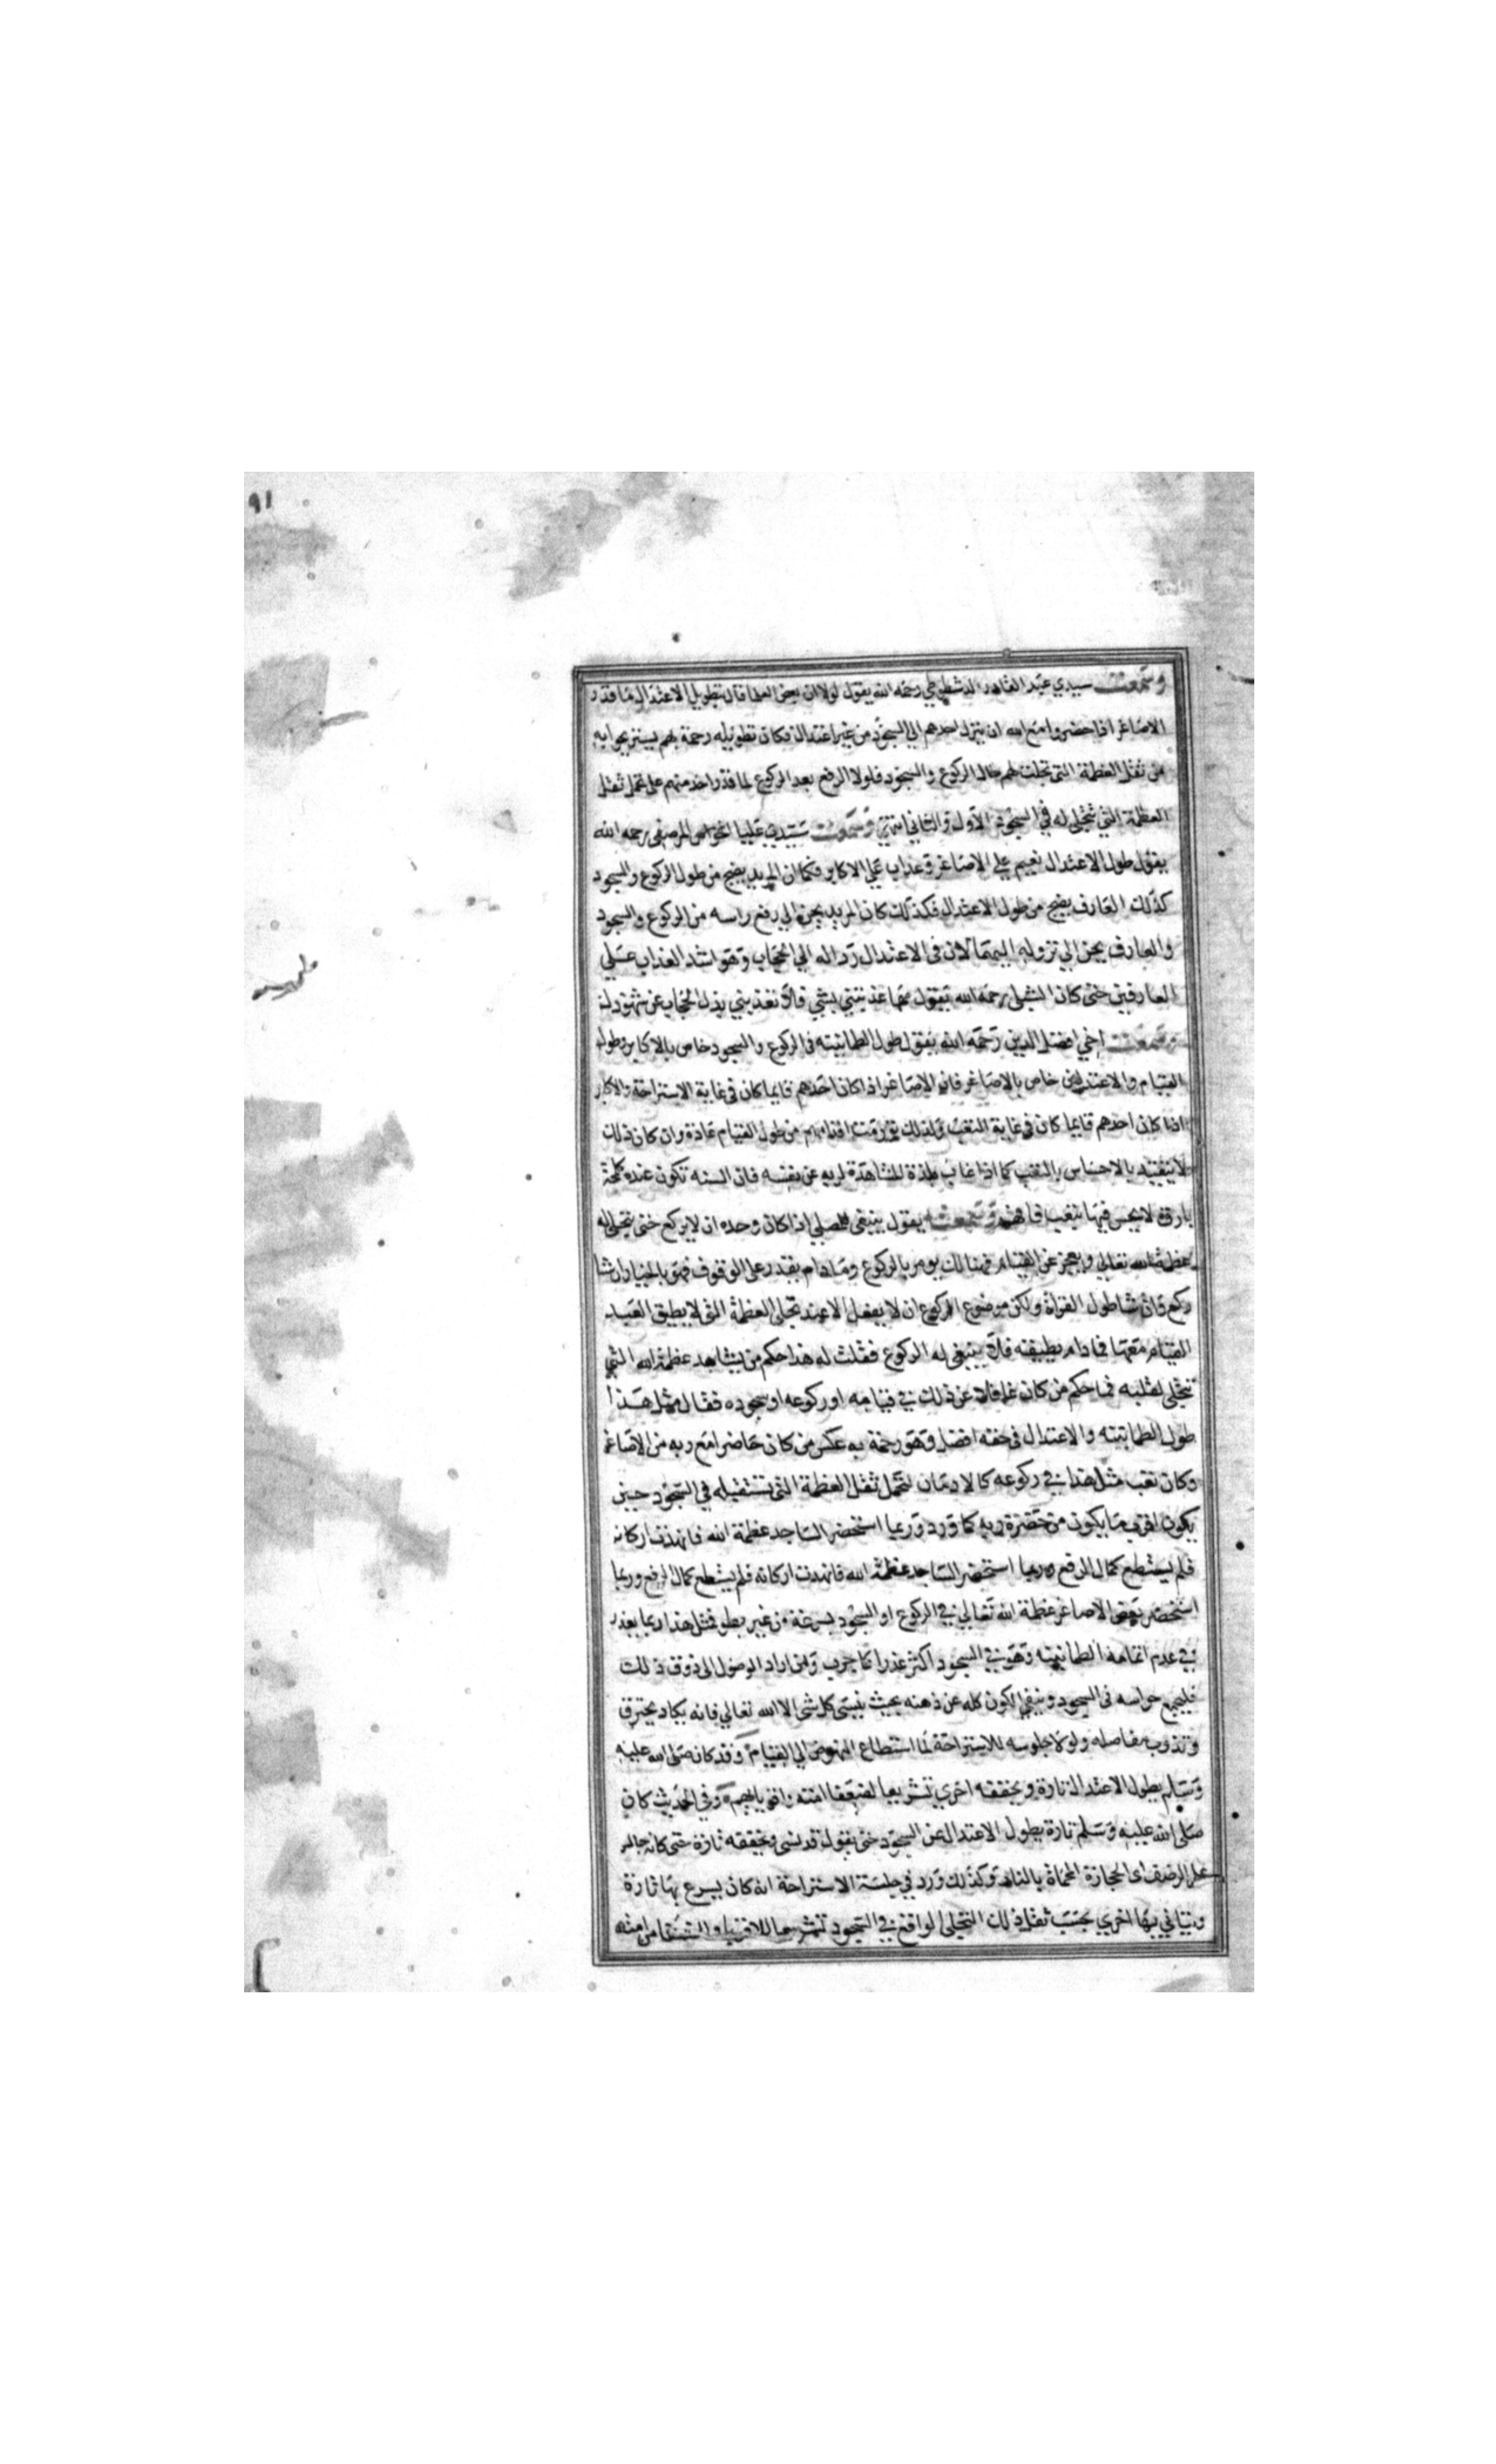 ٩١
وسمعت سيدي عبد القادر الدشطوطي رحمه الله يقول لولا ان بعض العلما قال بتطويل الاعتدال ما قدر
الاصاغر اذا حضروا مع الله ان ينزل احدهم الي السجود من غير اعتدال فكان تطويله رحمة بهم ليستريحوا به
من ثقل العظمة التي تجلت لهم حال الركوع والسجود فلولا الرفع بعد الركوع لما قدر احد منهم على تحمل ثقل
العظمة التي تتجلى له في السجود الاول والثاني انتهي وسمعت سيدي عليا الخواص المرصفي رحمه الله
يقول طول الاعتدال نعيم علي الاصاغر وعذاب علي الاكابر فكما ان المريد يضج من طول الركوع والسجود
كذلك العارف يضج من طول الاعتدال فكذلك كان المريد يحن الي رفع راسه من الركوع والسجود
والعارف يحن الي نزوله اليهما لان في الاعتدال رد اله الي الحجاب وهو اشد العذاب علي
العارفين حتى كان الشبلي رحمه الله يقول مهما عذبتني بشي فلا تعذبني بذل الحجاب عن شهودك
وسمعت اخي افضل الدين رحمه الله يقول طول الطمانينه في الركوع والسجود خاص بالاكابر وطول
القيام والاعتدالين خاص بالاصاغر فان الاصاغر اذا كان احدهم قايما كان في غاية الاستراحة والاكابر
اذا كان احدهم قايما كان في غاية التعب ولذلك تورمت اقدامهم من طول القيام عادة وان كان ذلك
لا ينفيه بالاحساس بالتعب كما اذا غاب بلذة المشاهدة لربه عن نفسه فان السنه تكون عنده كلمحة
بارق لا يحس فيها بتعب فافهم وسمعته يقول ينبغي للمصلي اذا كان وحده ان لا يركع حتى يتجلى له
عظمة الله تعالى ويعجز عن القيام فهنالك يومر بالركوع وما دام يقدر على الوقوف فهو بالخيار ان شا
ركع وان شا طول القراة ولكن موضوع الركوع ان لا يفعل الا عند تجلى العظمة التي لا يطيق العبد
القيام معها فما دام يطيقه فلا ينبغي له الركوع فقلت له هذا حكم من يشاهد عظمة الله التي
تتجلى لقلبه فما حكم من كان غافلا عن ذلك في قيامه او ركوعه او سجوده فقال مثل هذا
طول الطمانينه والاعتدال في حقه افضل وهو رحمة به عكس من كان حاضرا مع ربه من الاصاغر
وكان تعب مثل هذا في ركوعه كالادمان لتحمل ثقل العظمة التي تستقبله في السجود حين
يكون اقرب ما يكون من حضرة ربه كما ورد وربما استحضر الساجد عظمة الله فانهدت اركانه
فلم يستطع كمال الرفع وربما استحضر الساجد عظمة الله فانهدت اركانه فلم يستطع كمال الرفع وربما
استحضر بعض الاصاغر عظمة الله تعالي في الركوع او السجود بسرعة من غير بطو فمثل هذا ربما يعذر
في عدم اتمامه الطمانينه وهو في السجود اكثر عذرا كما جرب ومن اراد الوصول الى ذوق ذلك
فليجمع حواسه في السجود وينفي الكون كله عن ذهنه بحيث ينسى كل شى الا الله تعالي فانه يكاد يحترق
وتذوب مفاصله ولولا جلوسه للاستراحة لما استطاع النهوض الي القيام وقد كان صلى الله عليه
وسلم يطول الاعتدال تارة ويخففه اخري تشريعا لضعفا امته واقويايهم وفي الحديث كان
صلى الله عليه وسلم تارة يطول الاعتدال عن السجود حتى يقول قد نسى ويخففه تارة حتى كانه جالس
على الرضف اى الحجارة المحماة بالنار وكذلك ورد في جلسة الاستراحة انه كان يسرع بها تارة
ويتاني بها اخري بحسب ثقل ذلك التجلى الواقع في السجود تشريعا للاقويا والضعفا من امته